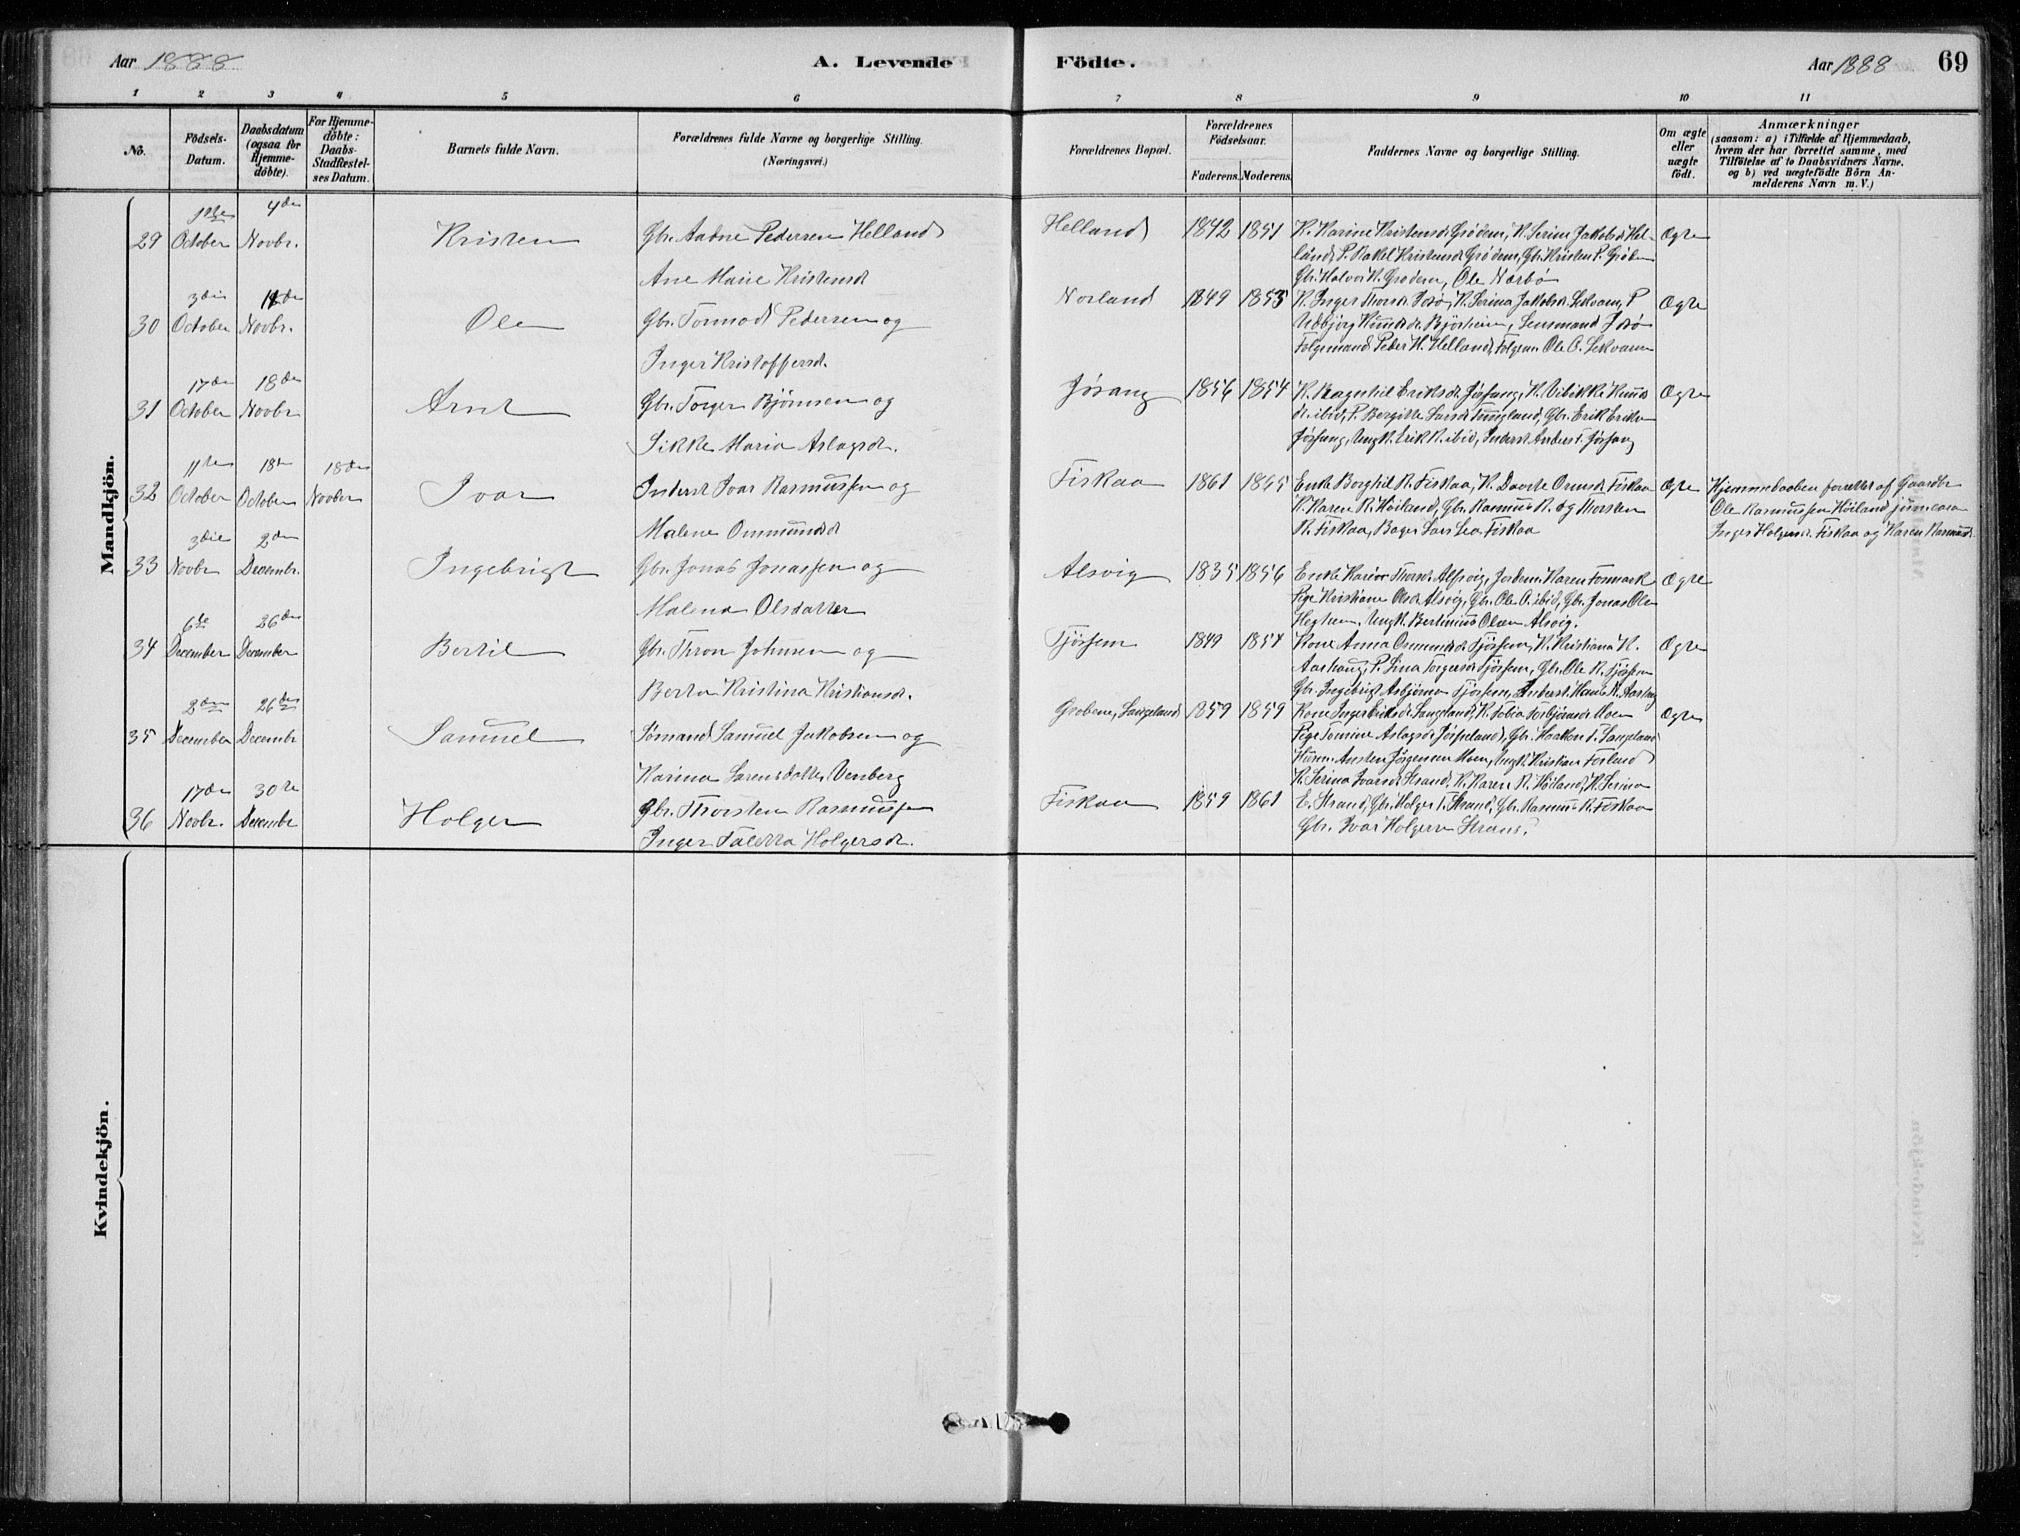 Aar 1888
A. Levende
Födte.
Aar 1888
69
1 2 3 4 5 6 7 8 9 10 11
No.
Födsels-
Datum.
Daabsdatum
(ogsaa for
Hjemme-
döbte).
For Hjemme-
döbte:
Daabs-
Stadfæstel-
ses Datum.
Barnets fulde Navn.
Forældrenes fulde Navne og borgerlige Stilling.
(Næringsvei.)
Forældrenes Bopæl.
Forældrenes
Födselsaar.
Faderens. Moderens.
Faddernes Navne og borgerlige Stilling.
Om ægte
eller
uægte
födt.
Anmærkninger
(saasom: a) i Tilfælde af Hjemmedaab,
hvem der har forrettet samme, med
Tilföielse af to Daabsvidners Navne.
og b) ved uægtefödte Börn An-
melderens Navn m. V.)
Mandkjön.
29 October 4de Novbr. Kristen Gbr. Aadne Pedersen Helland
Ane Marie Kristensd
Helland 1842 1851
K. Karine Kristensd. Grødem, K. Serine Jakobsd. Hel-
land, P. Rakel Kristensd. Grødem, Gbr. Kristen P. Grødem
Gbr. Halvor K. Grødem, Ole Nærbø
Ægte
30 3die October Novbr. Ole Gbr. Tormod Pedersen og
Inger Kristoffersd.
Norland 1849 1853
K. Inger Thorsd. Idsø, K. Serina Jakobsd. Sekvam, P
Lensmand Idsø
Peder H. Helland, Ole O. Sekvam
Ægte
31 17de October 18de Novbr. Arnt Gbr. Torger Bjørnsen og
Sikke Maria Aslagsd.
Jøsang 1856 1854
K. Ragnhil Eriksd. Jøssang, K. Vibikke Knuds
d. ibid, P. Bergitte Larsd. Tungland, Gbr. Erik Eriksen
Jøssang, Ungk. Erik K. ibid, Inderst Anders T. Jøssang
Ægte
32 11te October 18de October 18de Novbr Ivar Inderst Ivar Rasmussen og
Malene Ommundsd
Fiskaa 1861 1865
Enke Borghil R. Fiskaa, K. Daarte Ormsd. Fiskaa
K. Karen R. Høiland, Gbr. Rasmus R. og Thorsten
R. Fiskaa, Bager Lars Lea Fiskaa
Ægte
Hjemmedaaben forrettet af Gaardbr
Ole Rasmussen Høiland
Inger Holgersd. Fiskaa og Karen Rasmusd.
33 3die Novbr 2den Decembr. Ingebrigt Gbr. Jonas Jonassen og
Malena Olsdatter
Alsvig 1835 1856
Enke Karine Thorsd. Alsvig, Jordem. Karen Fosmark
Pige Kristiane Olsd. Alsvig, Gbr. Ole O. ibid, Gbr. Jonas Olsen
Heghem, Ungk. Bertinius Olsen Alsvig.
Ægte
34 6te December 26de December Bertil Gbr. Thron Johnsen og
Berta Kristina Kristiansd.
Tjøssem 1849 1854
Kone Anna Osmundsd. Tjøssem, K. Kristiana K.
Aarhaug, P. Lina Torgersd. Tjøssem, Gbr. Ole K. Tjøssem
Gbr. Ingebrigt Asbjørnsen Tjøssem, Inderst Hans K. Aarhaug
Ægte
35 2den December 26de Decembr Samuel Sømand Samuel Jakobsen og
Karina Sørensdatter Venberg
Grobene, Langeland 1859 1859
Kone Inger Eriksd. Langeland, K. Tobia Torbjørnsd. Moen
Pige Tomine Aslagsd. Jøsseland, Gbr. Haakon J. Langeland
Husm. Austen Jørgensen Moen, Ungk. Kristian Fosland
Ægte
36 17de Novbr. 30te Decembr Holger Gbr. Thorsten Rasmussen
Inger Taletta Holgersd.
Fiskaa 1859 1861
K. Serina Ivarsd. Strand, K. Karen R. Høiland, K. Serina
E. Strand, Gbr. Holger T. Strand, Gbr. Rasmus R. Fiskaa
Gbr. Ivar Holgersen Strand.
Kvindekjön.